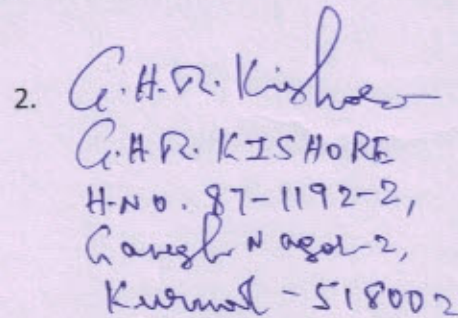 2. G.H.R. Kishore
G.H.R. KISHORE
H-NO. 87-1192-2,
Ganesh Nagar-2,
Kurnool - 518002